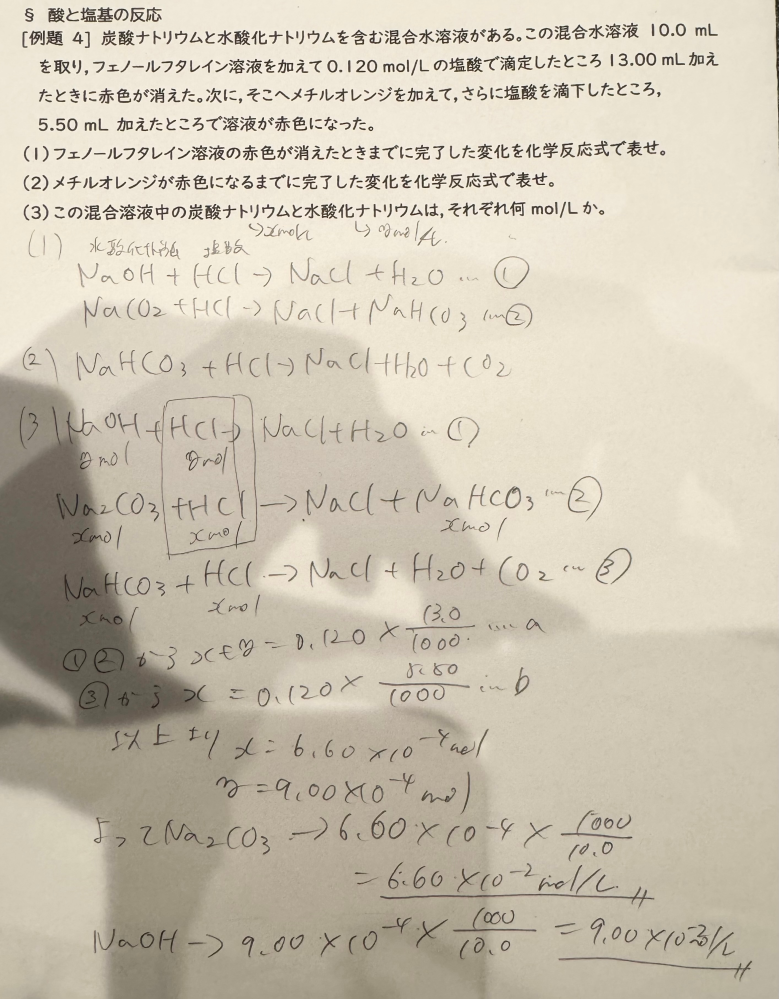 § 酸と塩基の反応
[例題 4] 炭酸ナトリウムと水酸化ナトリウムを含む混合水溶液がある。この混合水溶液 10.0 mL
を取り,フェノールフタレイン溶液を加えて0.120 mol/Lの塩酸で滴定したところ 13.00 mL加え
たときに赤色が消えた。次に,そこへメチルオレンジを加えて,さらに塩酸を滴下したところ,
5.50 mL 加えたところで溶液が赤色になった。
(1)フェノールフタレイン溶液の赤色が消えたときまでに完了した変化を化学反応式で表せ。
(2)メチルオレンジが赤色になるまでに完了した変化を化学反応式で表せ。
(3)この混合溶液中の炭酸ナトリウムと水酸化ナトリウムは,それぞれ何 mol/Lか。
↳xmol/L ↳ymol/L
(1) 塩酸
NaOH + HCl → NaCl + H2O … ①
NaCO2 + HCl → NaCl + NaHCO3 … ②
(2) NaHCO3 + HCl → NaCl + H2O + CO2
(3) NaOH + HCl → NaCl + H2O … ①
ymol ymol
Na2CO3 + HCl → NaCl + NaHCO3 … ②
xmol xmol xmol
NaHCO3 + HCl → NaCl + H2O + CO2 … ③
xmol xmol
①②から x+y = 0.120 × 13.0/1000 … a
③から x = 0.120 × 5.50/1000 … b
以上より x = 6.60 × 10⁻⁴ mol
y = 9.00 × 10⁻⁴ mol
よって Na2CO3 → 6.60 × 10⁻⁴ × 1000/10.0
= 6.60 × 10⁻² mol/L
NaOH → 9.00 × 10⁻⁴ × 1000/10.0 = 9.00 × 10⁻²